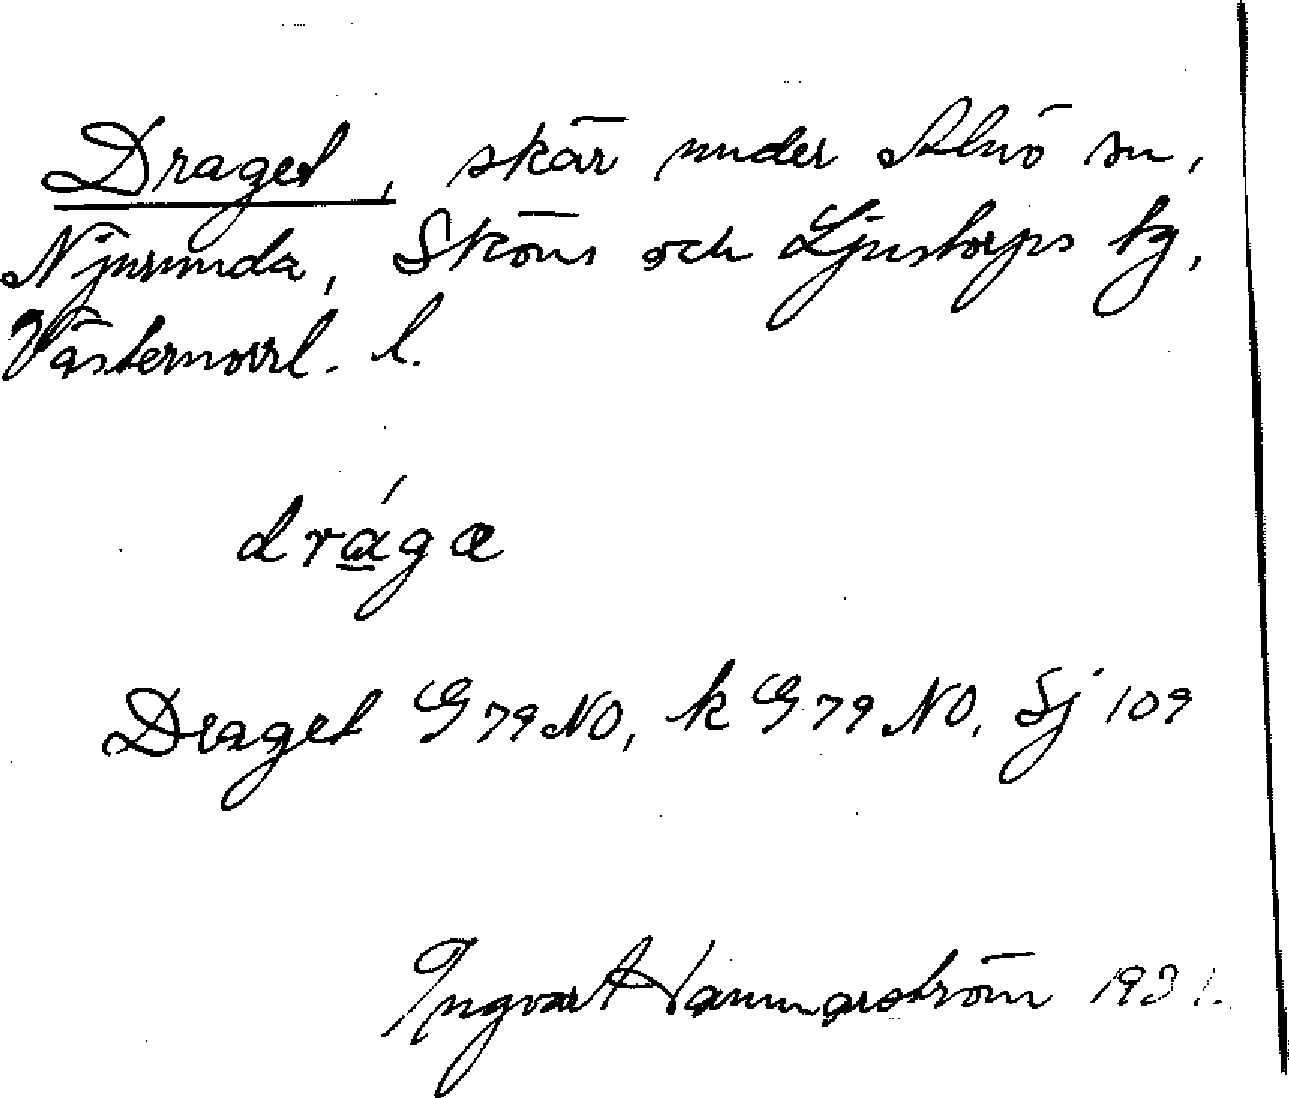 Draget, skär under Alnö sn,
Njurunda, Sköns och Ljustorps tg,
Västernorrl. l.
drága
Draget G 79 NO, k G 79 NO, Sj 109
Ingvar Hammarström 1931.